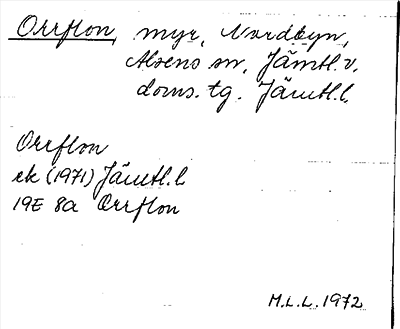 Orrflon, myr, Nordbyn,
Alsens sn, Jämtl. v.
doms. tg. Jämtl. l.
Orrflon
ek (1971) Jämtl. l
19E 8a Orrflon
M.L.L. 1972